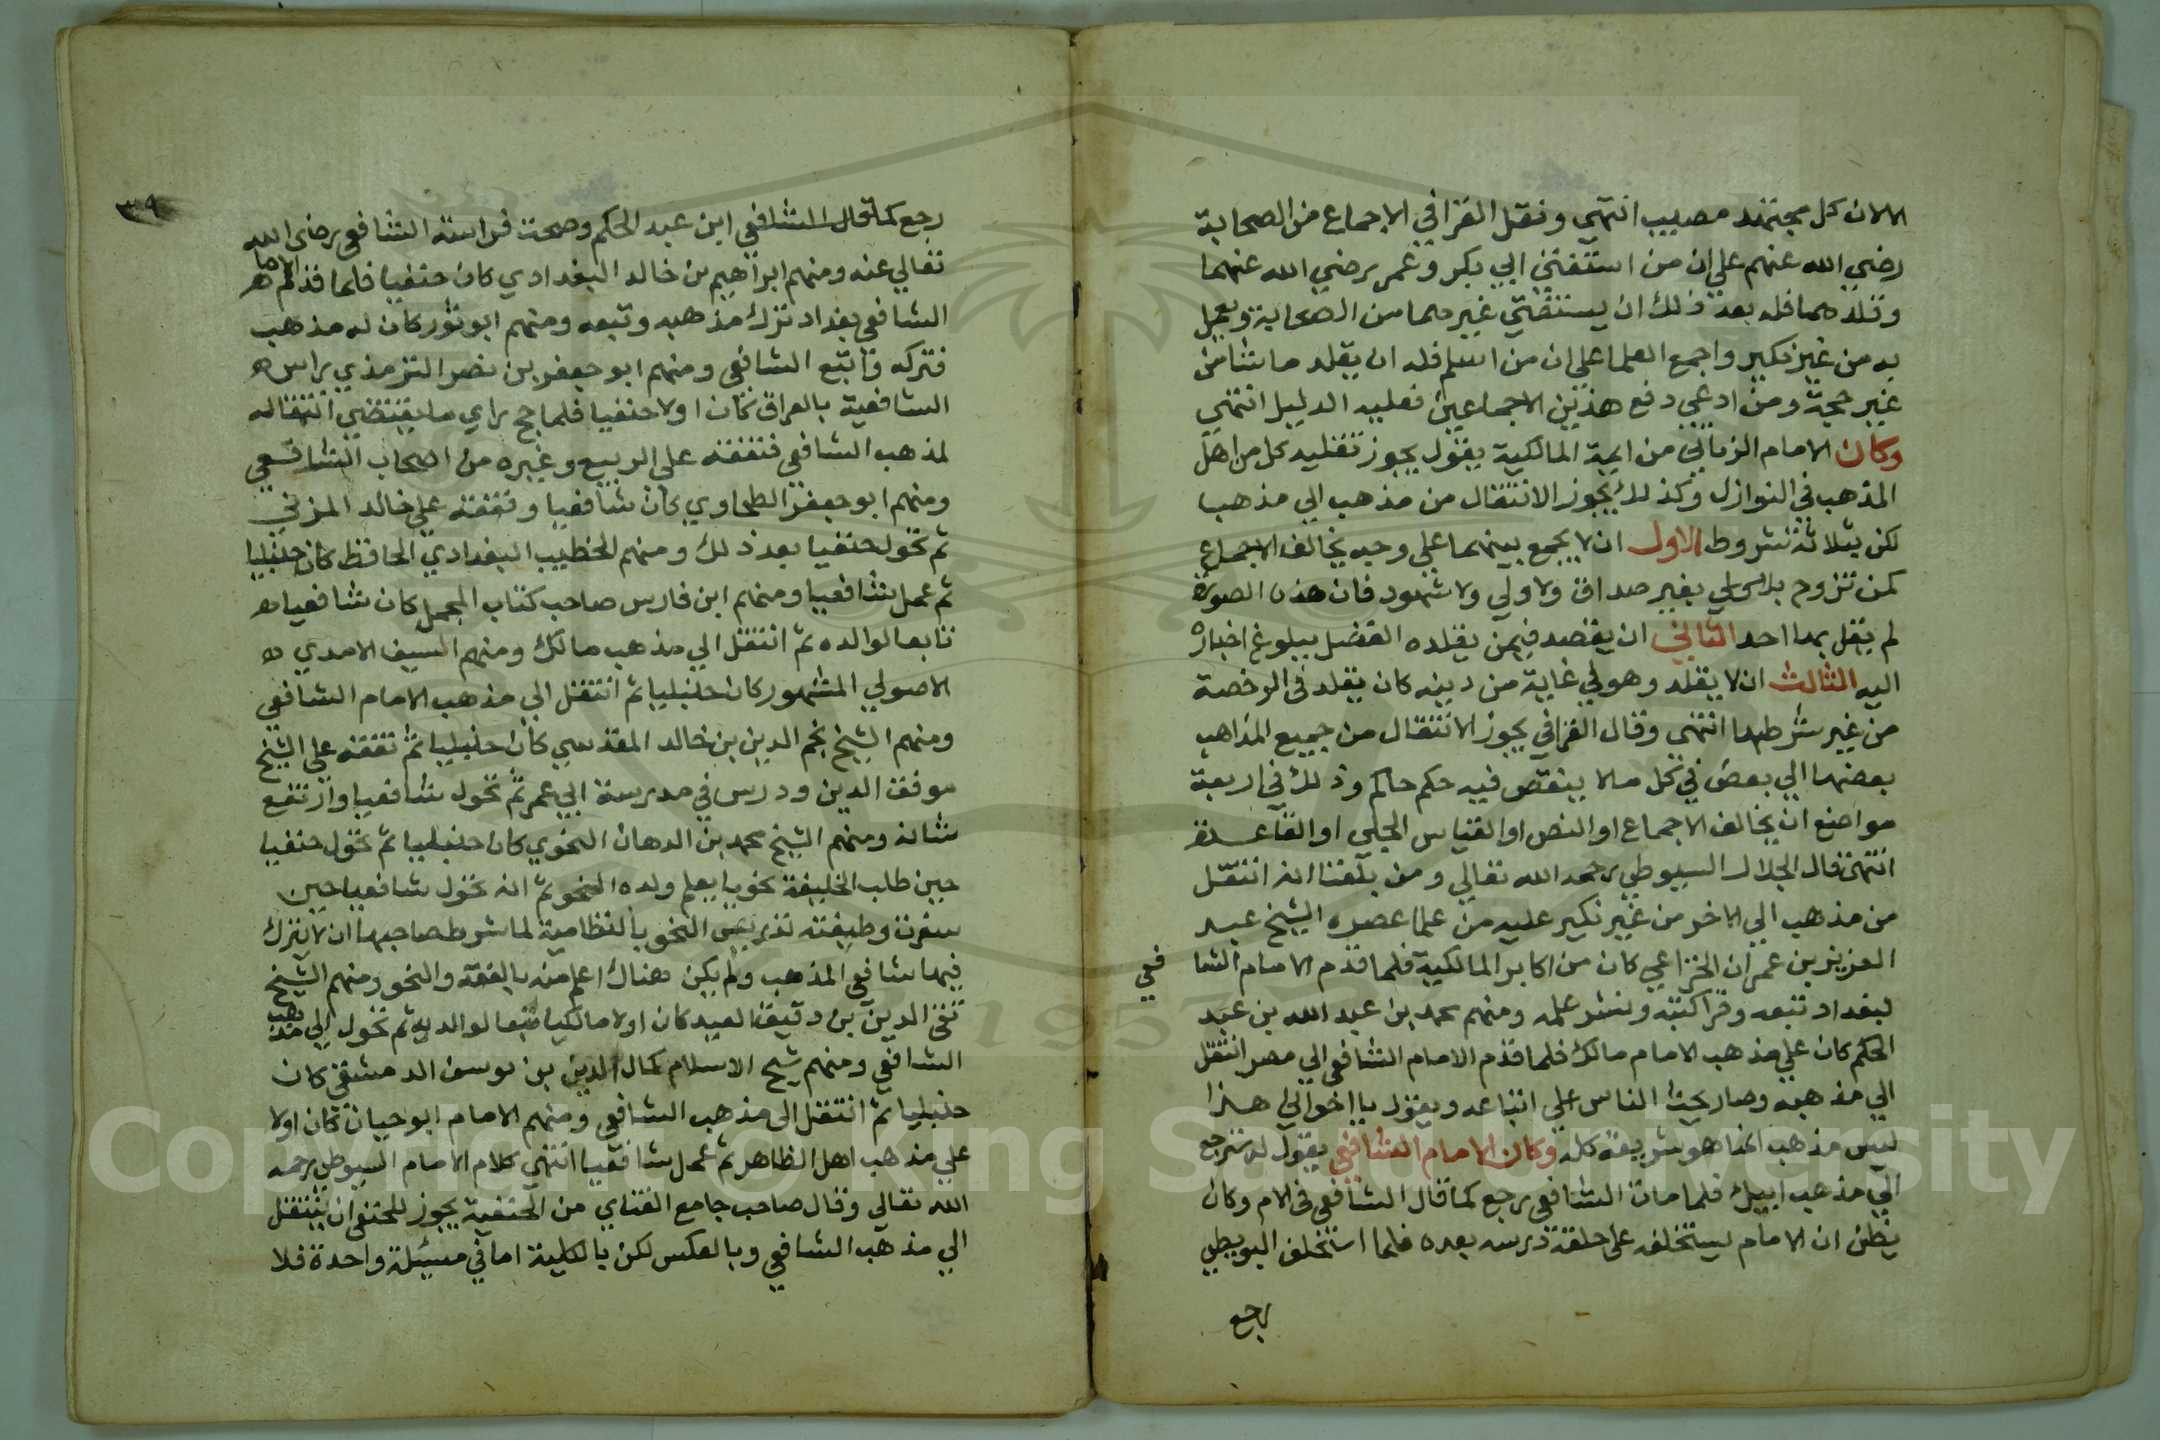 الا لان كل مجتهد مصيب انتهى ونقل القرافي الاجماع من الصحابة
رضي الله عنهم علي ان من استفتي ابي بكر وعمر رضي الله عنهما
وقلدهما فله بعد ذلك ان يستفتي غيرهما من الصحابة ويعمل
به من غير نكير واجمع العلما علي ان من اسلم فله ان يقلد ما شا من
غير حجة ومن ادعي دفع هذين الاجماعين فعليه الدليل انتهي
وكان الامام الزناتي من ايمة المالكية يقول يجوز تقليد كل من اهل
المذهب في النوازل وكذلك يجوز الانتقال من مذهب الي مذهب
لكن بثلاثة شروط الاول ان لا يجمع بينهما علي وجه يخالف الاجماع
كمن تزوج بلا ولي بغير صداق ولا ولي ولا شهود فان هذه الصورة
لم يقل بها احد الثاني ان يقصد فيمن يقلده الفضل ببلوغ اخباره
اليه الثالث ان لا يقلد وهو في عماية من دينه كان يقلد في الرخصة
من غير شرطها انتهى وقال القرافي يجوز الانتقال من جميع المذاهب
بعضها الي بعض في كل ما لا ينقض فيه حكم حاكم وذلك في اربعة
مواضع ان يخالف الاجماع او النص او القياس الجلي او القاعدة
انتهى قال الجلال السيوطي رحمه الله تعالي ومن بلغنا انه انتقل
من مذهب الي الاخر من غير نكير عليه من علما عصره الشيخ عبد
العزيز بن عمران الخزاعي كان من اكابر المالكية فلما قدم الامام الشا
فعي
لبغداد تبعه وقرا كتبه ونشر علمه ومنهم محمد بن عبد الله بن عبد
الحكم كان علي مذهب الامام مالك فلما قدم الامام الشافعي الي مصر انتقل
الي مذهبه وصار يحث الناس علي اتباعه ويقول يا اخواني هذا
ليس مذهب انما هو شريعة كله وكان الامام الشافعي يقول له سترجع
الي مذهب ابيك فلما مات الشافعي رجع كما قال الشافعي في الام وكان
يظن ان الامام يستخلفه علي حلقة درسه بعده فلما استخلف البويطي
رجع
٣٩
رجع كما قال الشافعي ابن عبد الحكم وصحت فراسة الشافعي رضي الله
تعالي عنه ومنهم ابراهيم بن خالد البغدادي كان حنفيا فلما قدم الامام
الشافعي بغداد ترك مذهبه وتبعه ومنهم ابو ثور كان له مذهب
فتركه واتبع الشافعي ومنهم ابو جعفر بن نصر الترمذي راس
الشافعية بالعراق كان اولا حنفيا فلما حج راي ما يقتضي انتقاله
لمذهب الشافعي فتفقه علي الربيع وغيره من اصحاب الشافعي
ومنهم ابو جعفر الطحاوي كان شافعيا وتفقه علي خالد المزني
ثم تحول حنفيا بعد ذلك ومنهم الخطيب البغدادي الحافظ كان حنبليا
ثم عمل شافعيا ومنهم ابن فارس صاحب كتاب المجمل كان شافعيا
تابعا لوالده ثم انتقل الي مذهب مالك ومنهم السيف الامدي
الاصولي المشهور كان حنبليا ثم انتقل الي مذهب الامام الشافعي
ومنهم الشيخ نجم الدين بن خالد المقدسي كان حنبليا ثم تفقه علي الشيخ
موفق الدين ودرس في مدرسة ابي عمر ثم تحول شافعيا وارتفع
شانه ومنهم الشيخ محمد بن الدهان النحوي كان حنبليا ثم تحول حنفيا
حين طلب الخليفة نحويا يعلم ولده النحو ثم انه تحول شافعيا حين
شغرت وظيفته تدريس النحو بالنظامية لما شرط صاحبها ان لا ينزل
فيها شافعي المذهب ولم يكن هناك اعلم منه بالفقه والنحو ومنهم الشيخ
تقي الدين بن دقيق العيد كان اولا مالكيا تبعا لوالديه ثم تحول الي مذهب
الشافعي ومنهم شيخ الاسلام كمال الدين بن يوسف الدمشقي كان
حنبليا ثم انتقل الي مذهب الشافعي ومنهم الامام ابو حيان كان اولا
علي مذهب اهل الظاهر ثم عمل شافعيا انتهي كلام الامام السيوطي رحمه
الله تعالي وقال صاحب جامع الفتاوي من الحنفية يجوز للحنفي ان ينتقل
الي مذهب الشافعي وبالعكس لكن بالكلية اما في مسئلة واحدة فلا
Copyright © King Saud University
1957